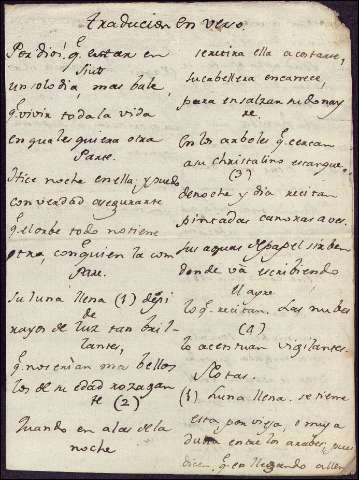 traducion en verso.
Por dios! q. estar en
Siut
un solo dia, mas bale,
q. vivir toda la vida
en qualesquiera otra
Parte.
Hice noche en ella, y puedo
con verdad asegurarte
q. el orbe todo no tiene
otra, con quien la com
Pare.
Su luna llena (1) dejó
de
rayos de luz tan bril-
lantes,
q. no serian mas bellos
los de su edad rozagan
te (2)
Quando en alas de la
noche
ella acostarse,
su cabellera encarece,
para ensalzar su donay
re.
En los arboles q. cercan
a su christalino estanque,
(3)
de noche y dia recitan
pintadas canoras aves.
Sus aguas de papel sirben
donde va escribiendo
el ayre
lo q. recitan. Las nubes
(4)
lo acentuan vigilantes.
Notas.
(1) Luna llena. se tiene
esta, por vieja, o muy a
entre los arabes, pues
dicen, q. en llegando a llen